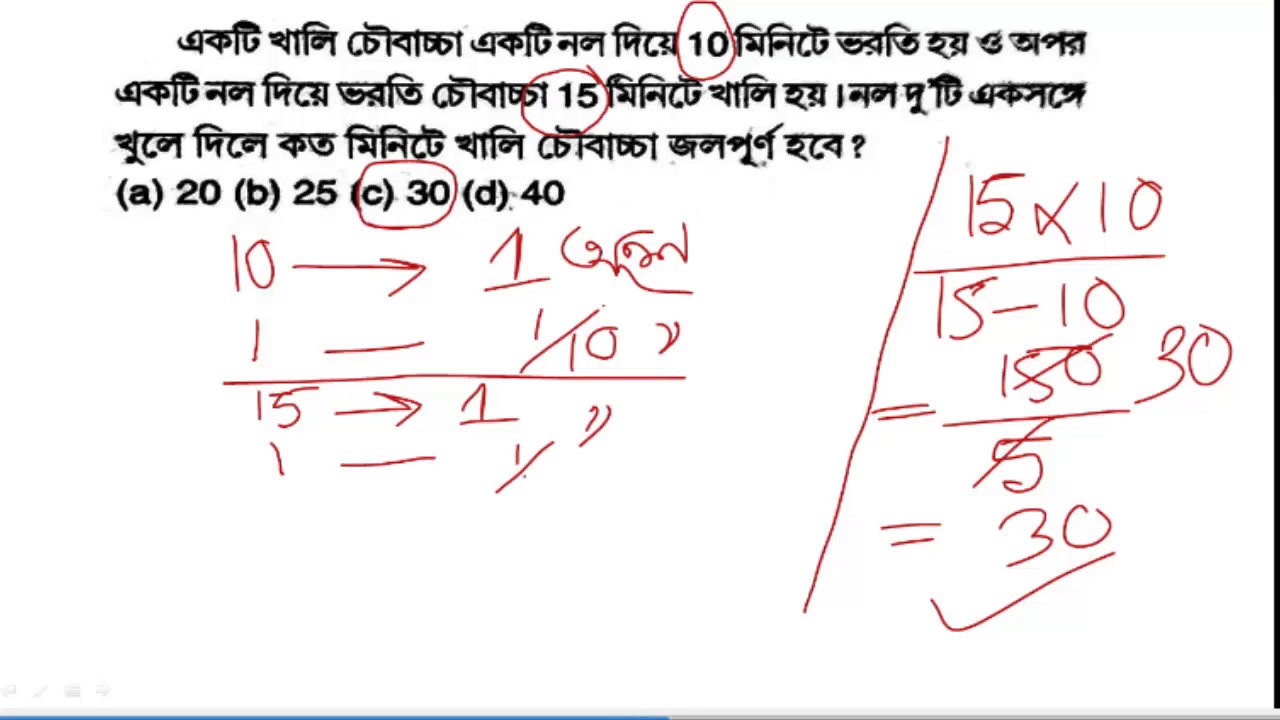 একটি খালি চৌবাচ্চা একটি নল দিয়ে 10 মিনিটে ভরতি হয় ও অপর
একটি নল দিয়ে ভরতি চৌবাচ্চা 15 মিনিটে খালি হয়। নল দু'টি একসঙ্গে
খুলে দিলে কত মিনিটে খালি চৌবাচ্চা জলপূর্ণ হবে?
(a) 20 (b) 25 (c) 30 (d) 40
10 → 1 অংশ
1 — 1/10 "
15 → 1 "
1 — 1/
15 × 10
15 - 10
= 150 30
5
= 30